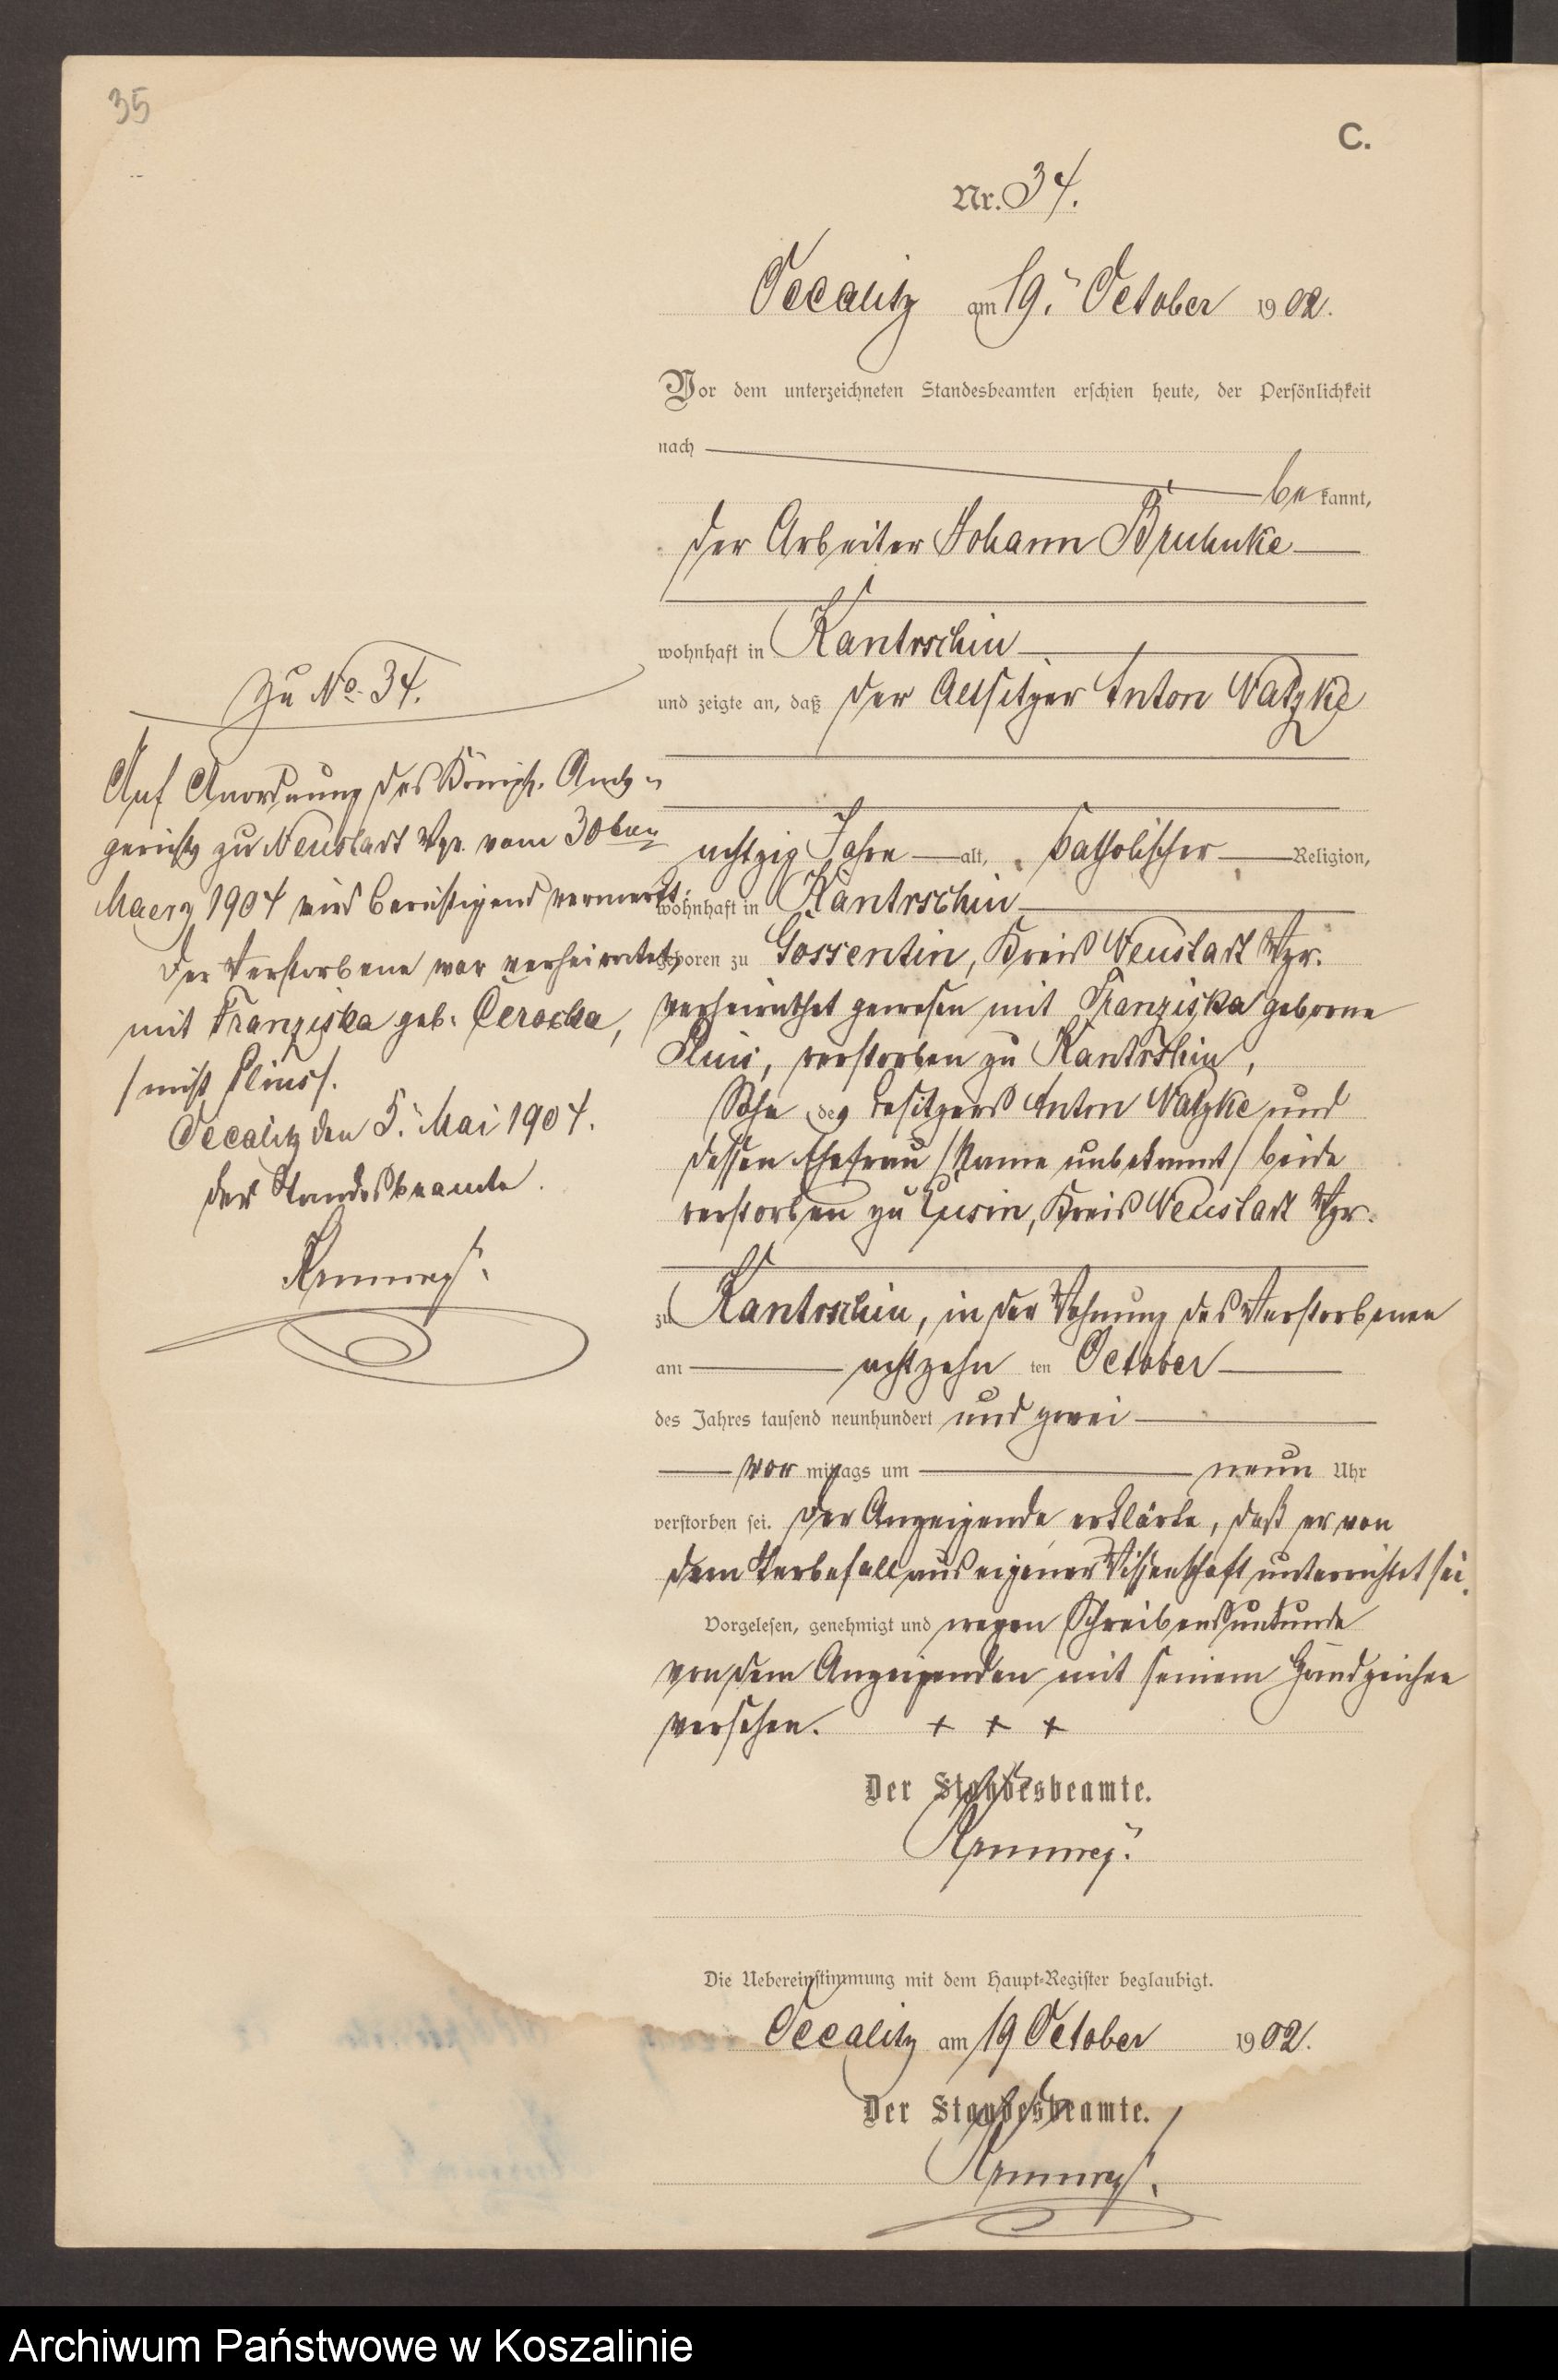 35
C.
Nr. 34.
Occalitz am 19. October 1902.
Vor dem unterzeichneten Standesbeamten erschien heute, der Persönlichkeit
nach
bekannt,
der Arbeiter Johann Bruhnke
wohnhaft in Kantrschin
und zeigte an, daß der Altsitzer Anton Natzke
achtzig Jahre alt, katholischer Religion,
wohnhaft in Kantrschin
geboren zu Gossentin, Kreis Neustadt Wpr.
verheirathet gewesen mit Franziska geborne
verstorben zu Kantrschin,
Sohn des Besitzers Anton Natzke und
dessen Ehefrau /Name unbekannt/ beide
verstorben zu Lusin, Kreis Neustadt Wpr.
zu Kantrschin, in der Wohnung des Verstorbenen
am achtzehn ten October
des Jahres tausend neunhundert und zwei
vor mittags um neun Uhr
verstorben sei. Der Anzeigende erklärte, daß er von
dem Sterbefall aus eigener Wissenschaft unterrichtet sei.
Vorgelesen, genehmigt und wegen Schreibensunkunde
von dem Anzeigenden mit seinem Handzeichen
versehen. + + +
Der Standesbeamte.
Die Uebereinstimmung mit dem Haupt-Register beglaubigt.
Occalitz am 19 October 1902.
Der Standesbeamte.
Zu No. 34.
Auf Anordnung des Königl. Amts-
gerichts zu Neustadt Wpr. vom 30ten
Maerz 1904 wird berichtigend vermerkt:
Der Verstorbene war verheiratet
mit Franziska geb. Ceroska,
/nicht Plius/.
Occalitz den 5. Mai 1904.
Der Standesbeamte.
Archiwum Państwowe w Koszalinie